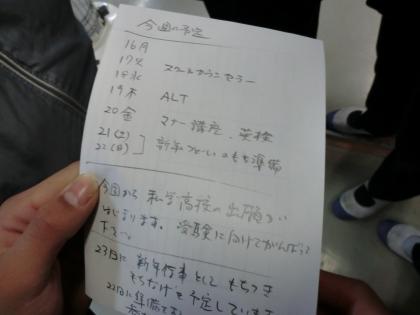 今週の予定
16月
17火
18水 スクールカウンセラー
19木 ALT
20金 マナー講座、英検
21(土)
22(日) 新年 もち準備
今週から私学高校の出願が
はじまります。受験に向けてがんばって
下さい。
23日に新年行事としてもちつき
を予定しています
22日に準備